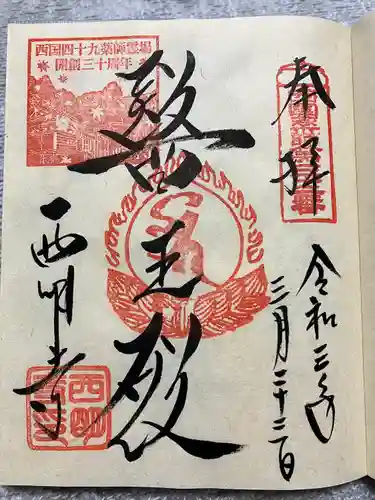 奉拝
令和三年
三月二十二日
醫王殿
西国四十九薬師霊場
開創三十周年
西明寺